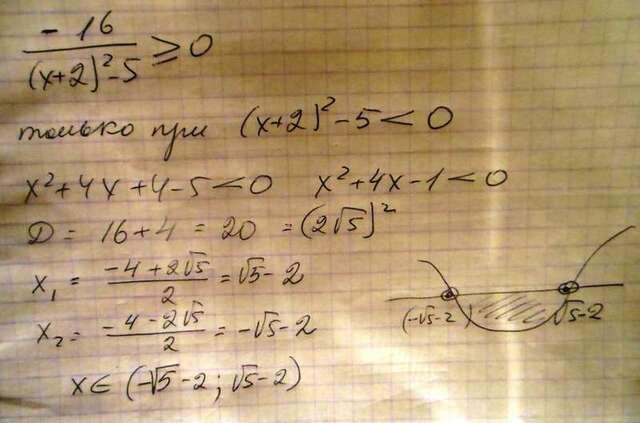 -16/((x+2)²-5) ≥ 0
только при (x+2)²-5<0
x²+4x+4-5<0 x²+4x-1<0
D = 16+4 = 20 = (2√5)²
x₁ = (-4+2√5)/2 = √5-2
x₂ = (-4-2√5)/2 = -√5-2
(-√5-2) √5-2
x∈(-√5-2; √5-2)